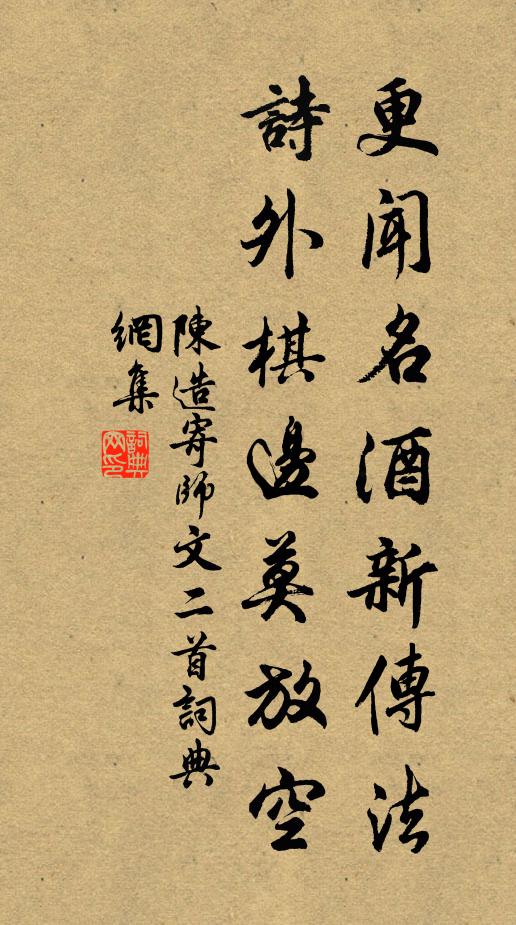 更聞名酒新傳法
詩外棋邊莫放空
陳造寄師文二首詞典
網集
詞典網印